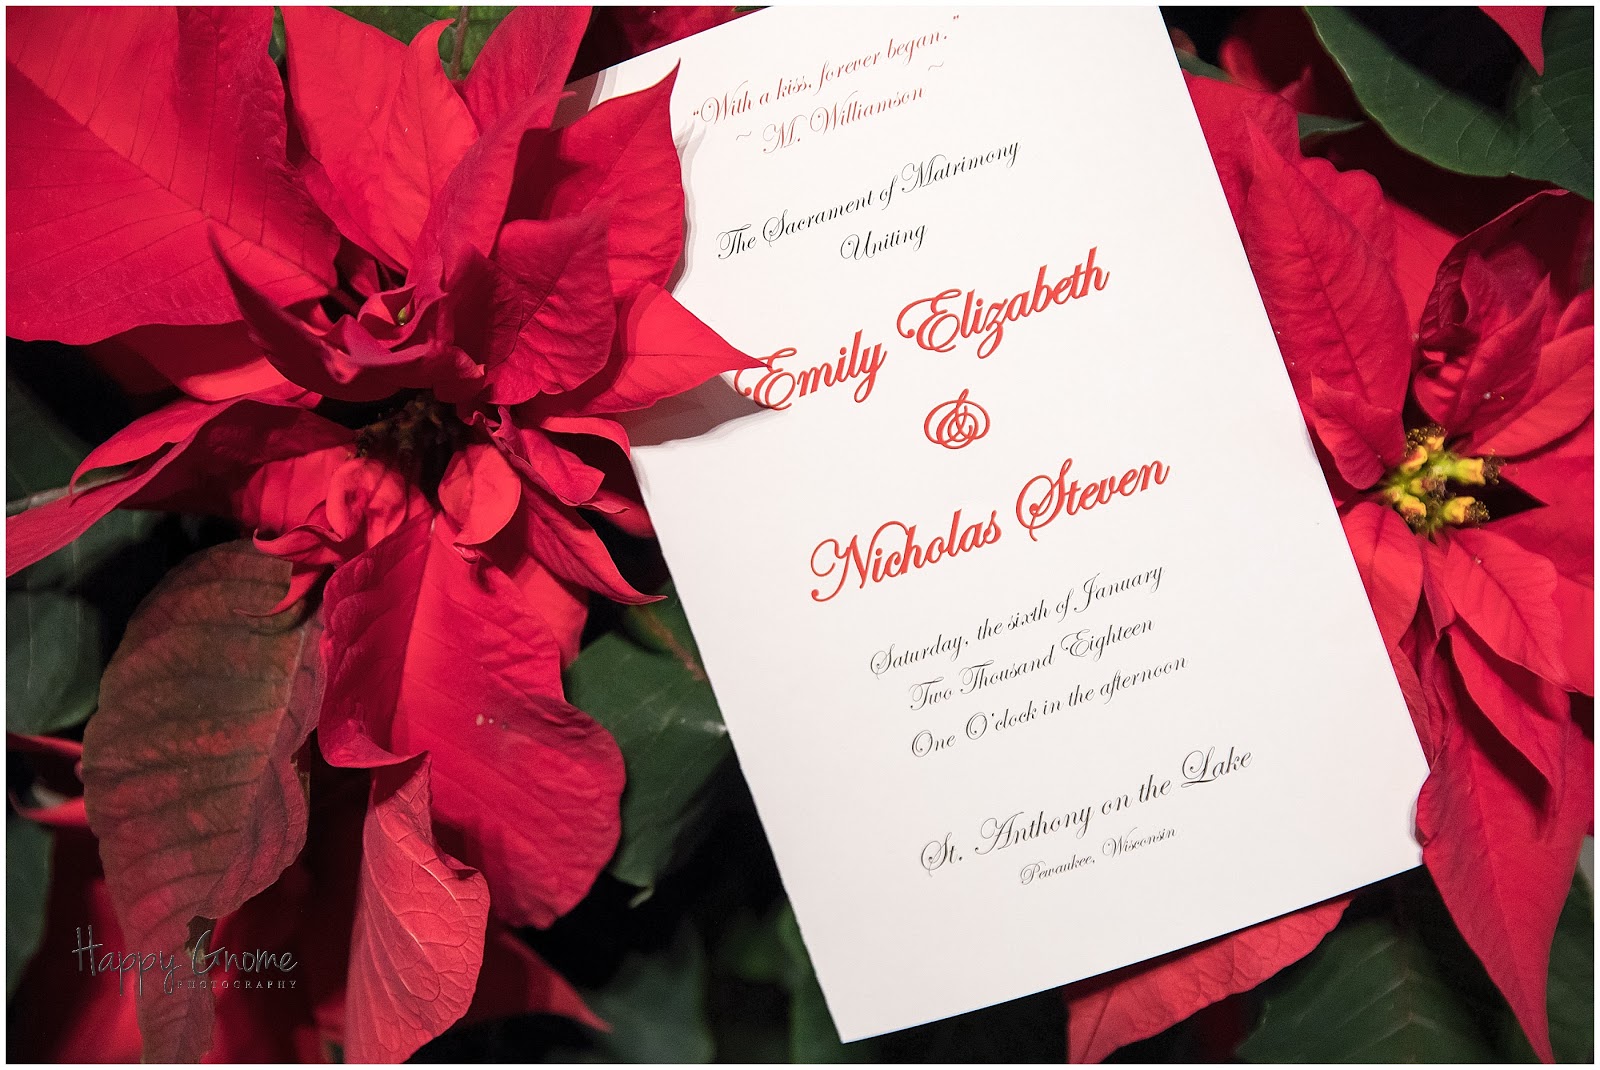 "With a kiss, forever began."
~ M. Williamson ~
The Sacrament of Matrimony
Uniting
Emily Elizabeth
&
Nicholas Steven
Saturday, the sixth of January
Two Thousand Eighteen
One O'clock in the afternoon
St. Anthony on the Lake
Pewaukee, Wisconsin
Happy Gnome
PHOTOGRAPHY